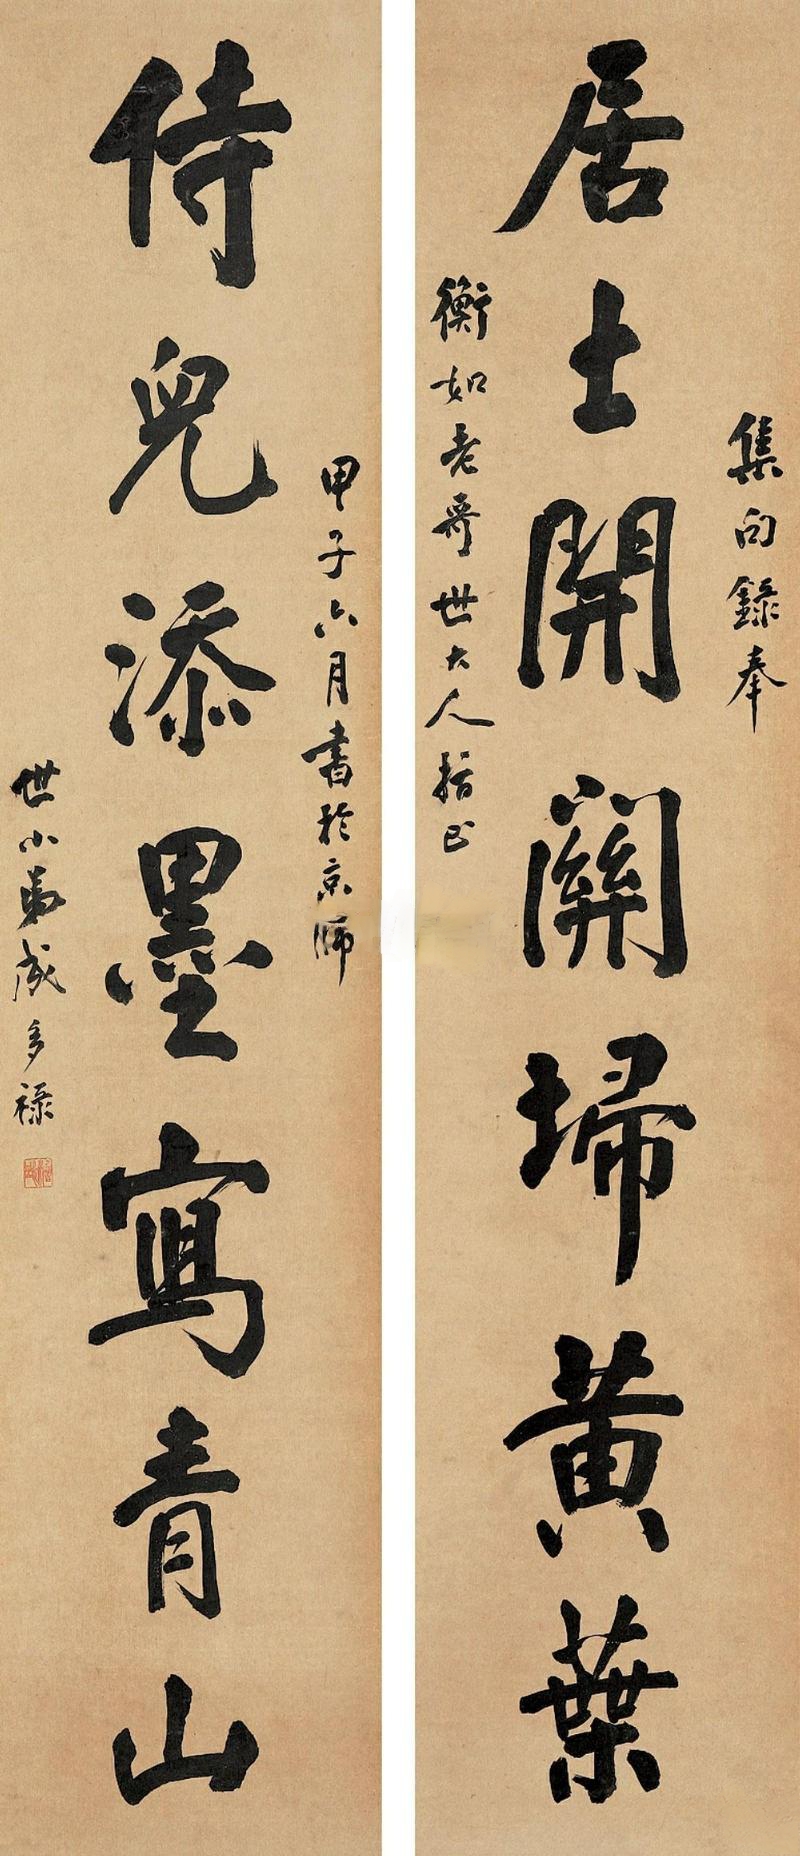 集句錄奉
居士開關掃黃葉
衡如老哥世大人指正
甲子六月書於京師
侍兒添墨寫青山
世小弟成多祿